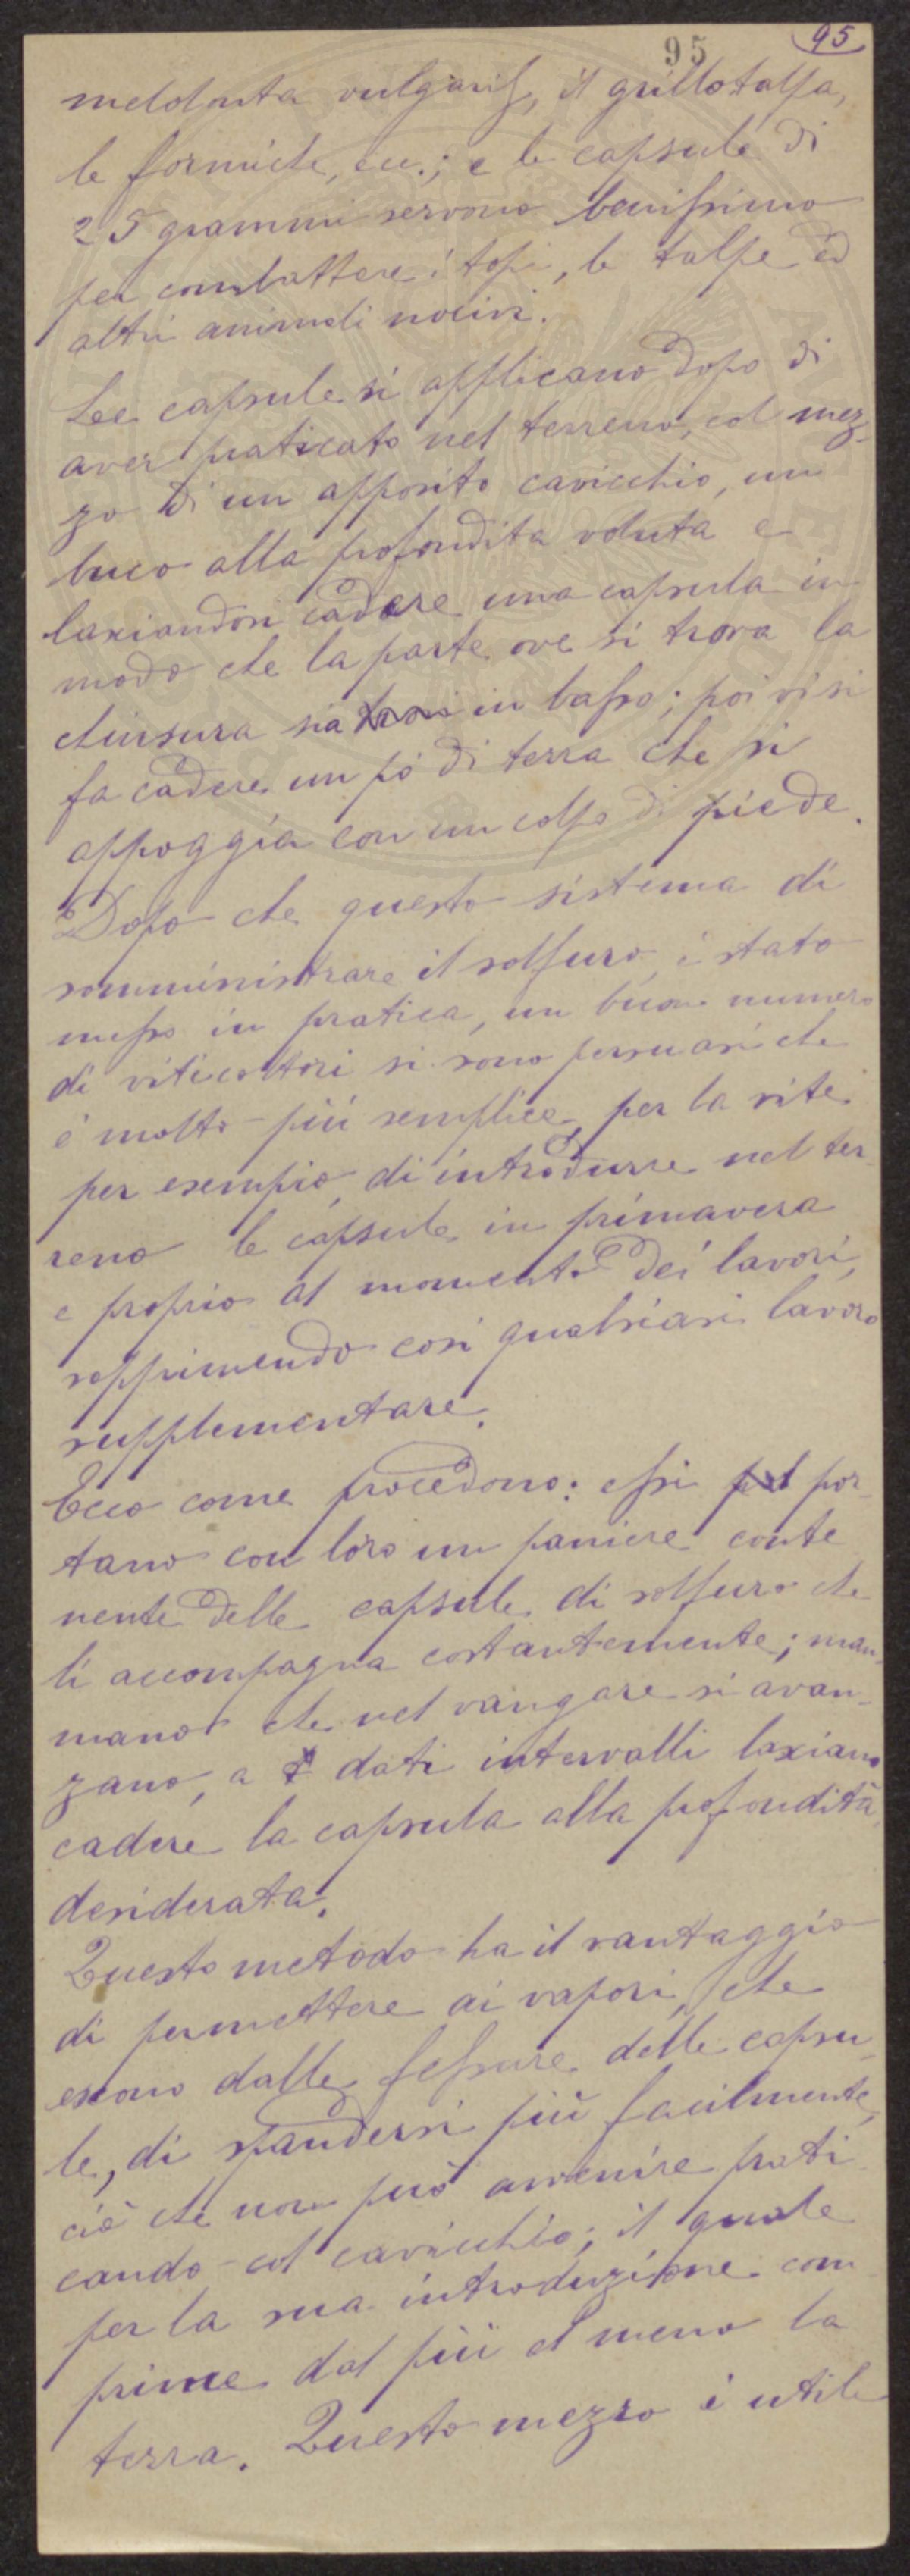 95
95
melolonta vulgaris, il grillotalpa,
le formiche, ecc.; e le capsule di
25 grammi servono benissimo
per combattere i topi, le talpe ed
altri animali nocivi.
Lee capsule si applicano dopo di
aver praticato nel terreno, col mez-
zo di un apposito cavicchio, un
buco alla profondita voluta e
lasciandovi cadere una capsula in
modo che la parte ove si trova la
chiusura sia in basso; poi vi si
fa cadere un pò di terra che si
appoggia con un colpo di piede.
Dopo che questo sistema di
somministrare il solfuro, è stato
messo in pratica, un buon numero
di viticoltori si sono persuasi che
è molto più semplice, per la vite
per esempio, di introdurre nel ter-
reno le capsule in primavera
e proprio al momento dei lavori,
sopprimendo così qualsiasi lavoro
supplementare.
Ecco come procedono: essi por-
tano con loro un paniere conte
nente delle capsule di solfuro che
li accompagna costantemente; man-
mano che nel vangare si avan-
zano, a dati intervalli lasciano
cadere la capsula alla profondità
desiderata.
Questo metodo ha il vantaggio
di permettere ai vapori, che
escono dalle fessure delle capsu-
le, di spandersi più facilmente,
ciò che non può avvenire prati
cando col cavicchio; il quale
per la sua introduzione com
prime dal più al meno la
terra. Questo mezzo è utile